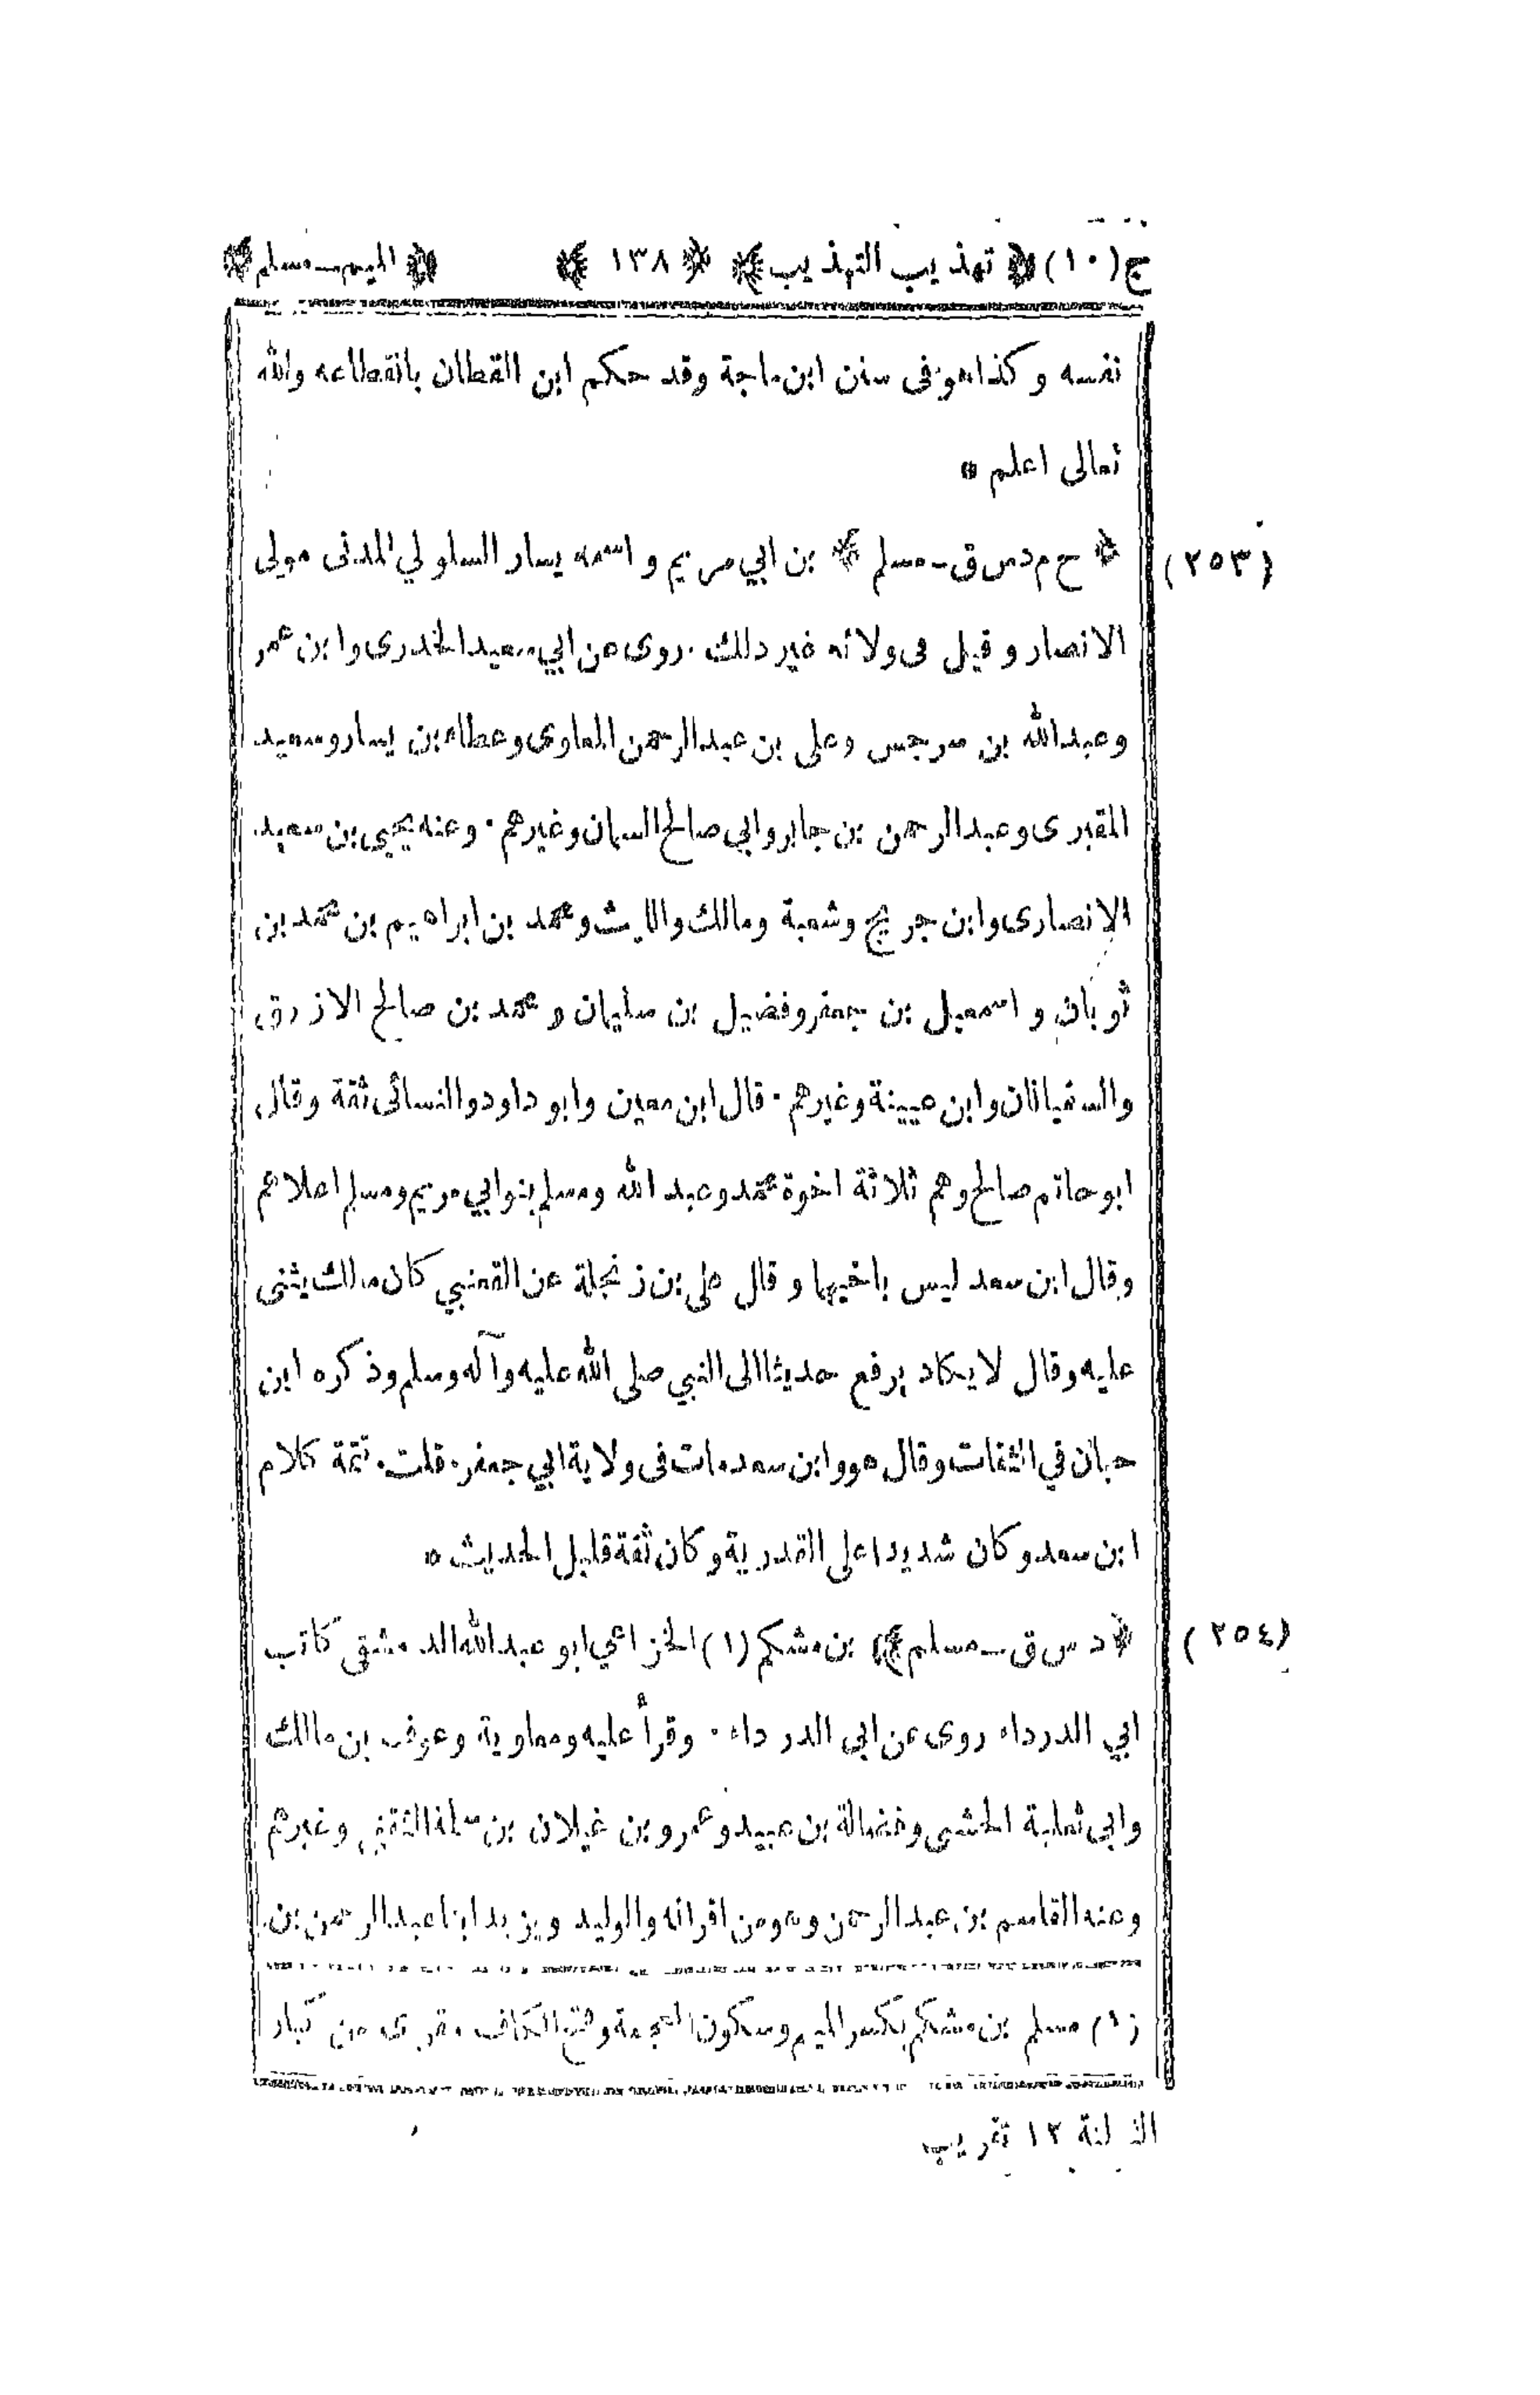 ج (١٠) ﴿ تهذيب التهذيب ﴾ ﴿ ١٣٨ ﴾ ﴿ الميم ـ مسلم ﴾
نفسه وكذا هو فى سنن ابن ماجة وقد حكم ابن القطان بانقطاعه والله
تعالى اعلم *
(٢٥٣) ﴿ خ م د س ق ـ مسلم ﴾ بن ابي مريم واسمه يسار السلولي المدنى مولى
الانصار وقيل فى ولائه غير ذلك . روى عن ابي سعيد الخدرى وابن عمر
وعبدالله بن سرجس وعلى بن عبدالرحمن المعاوى وعطاء بن يسار وسعيد
المقبرى وعبدالرحمن بن جابر وابي صالح السمان وغيرهم . وعنه يحيى بن سعيد
الانصارى وابن جريج وشعبة ومالك والليث ومحمد بن ابراهيم بن محمد بن
ثوبان واسمعيل بن جعفر وفضيل بن سليمان ومحمد بن صالح الازرق
والسفيانان وابن عيينة وغيرهم . قال ابن معين وابو داود والنسائى ثقة وقال
ابو حاتم صالح وهم ثلاثة اخوة محمد وعبد الله ومسلم بنو ابي مريم ومسلم اعلاهم
وقال ابن سعد ليس باخيهما وقال على بن زنجلة عن القعنبي كان مالك يثنى
عليه وقال لا يكاد يرفع حديثا الى النبي صلى الله عليه وآله وسلم وذكره ابن
حبان في الثقات وقال هو وابن سعد مات فى ولاية ابي جعفر . قلت . تتمة كلام
ابن سعد وكان شديدا على القدرية وكان ثقة قليل الحديث *
(٢٥٤) ﴿ د س ق ـ مسلم ﴾ بن مشكم (١) الخزاعي ابو عبدالله الدمشقى كاتب
ابي الدرداء روى عن ابى الدرداء . وقرأ عليه ومعاوية وعوف بن مالك
وابى ثعلبة الخشنى وفضالة بن عبيد وعمرو بن غيلان بن سلمة الثقفى وغيرهم
وعنه القاسم بن عبدالرحمن وهو من اقرانه والوليد ويزيد ابنا عبدالرحمن بن
(١) مسلم بن مشكم بكسر الميم وسكون المعجمة وفتح الكاف مقرى من كبار
الثالثة ١٢ تقريب